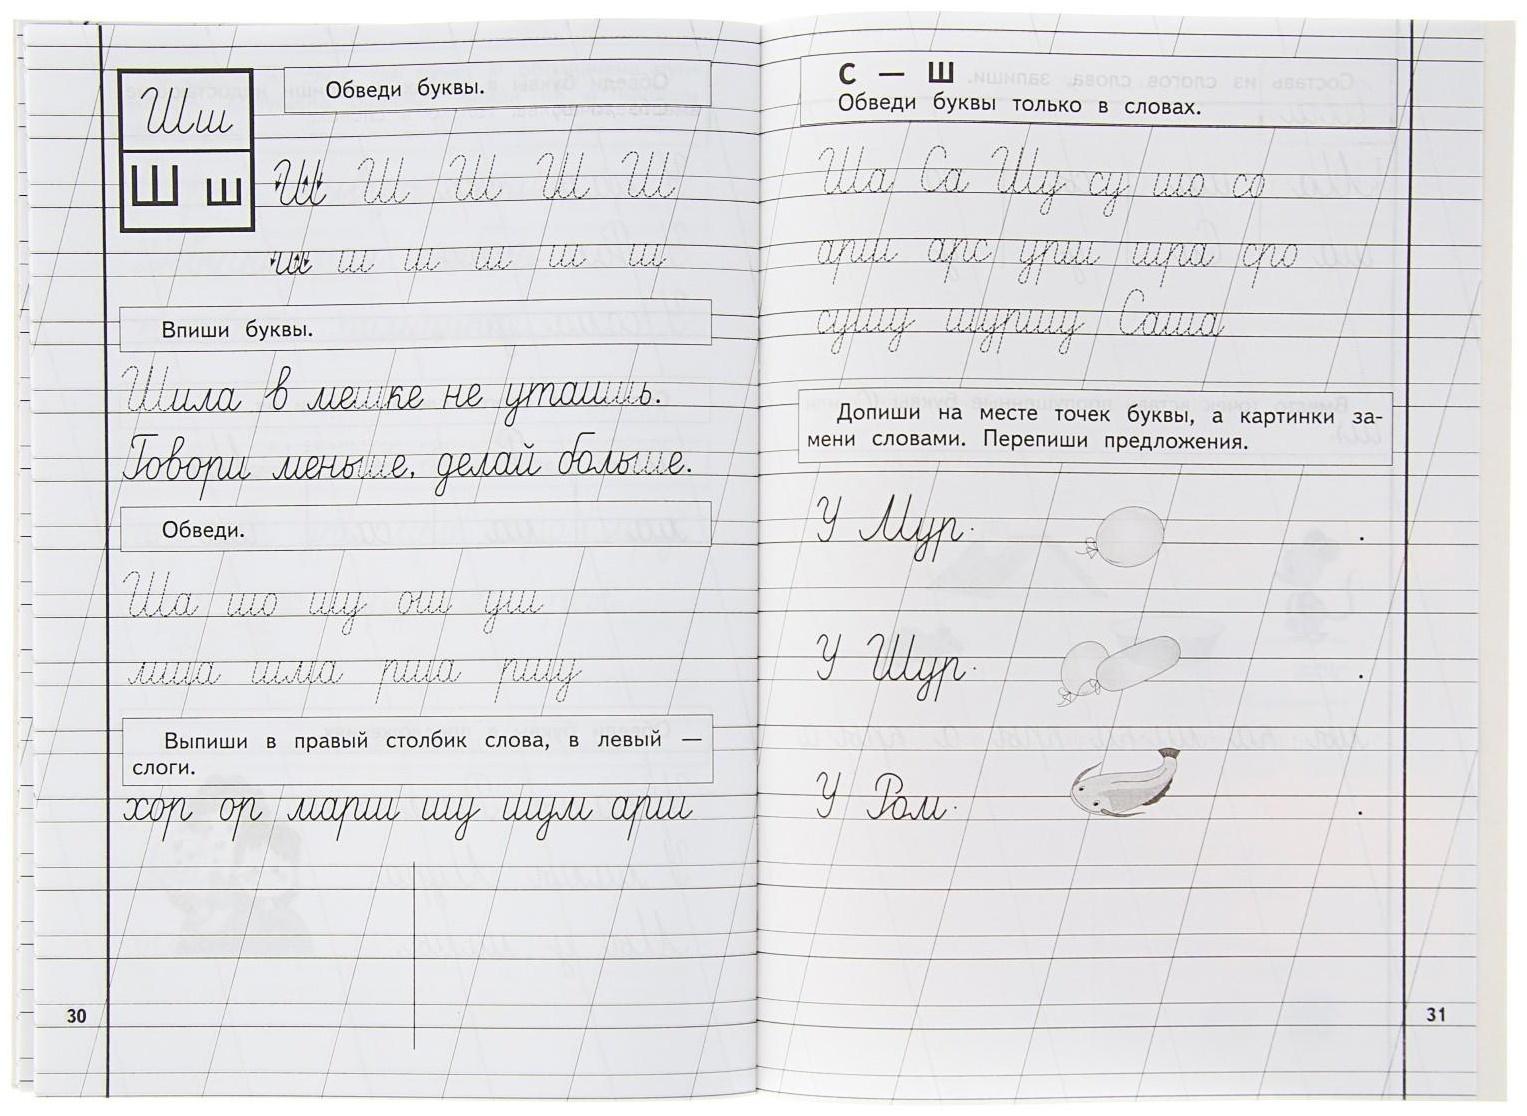 Шш
Ш ш
Обведи буквы.
Ш Ш Ш Ш Ш
ш ш ш ш ш ш
Впиши буквы.
Шила в мешке не утаишь.
Говори меньше, делай больше.
Обведи.
Ша шо шу ош уш
лиша шма рша ршу
Выпиши в правый столбик слова, в левый —
слоги.
хор ор марш шу шум арш
30
С — Ш
Обведи буквы только в словах.
Ша Са Шу су шо со
арш арс урш шра сро
сушу шуршу Саша
Допиши на месте точек буквы, а картинки за-
мени словами. Перепиши предложения.
У Мур. .
У Шур. .
У Ром. .
31